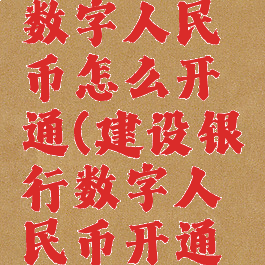 数字人民
币怎么开
通(建设银
行数字人
民币开通